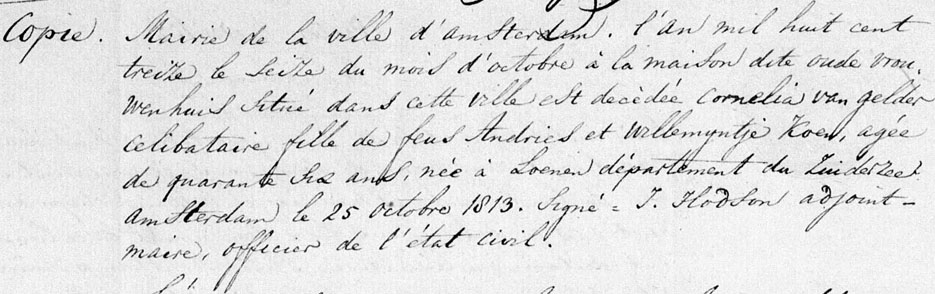 Copie. Mairie de la ville d'amsterdam. l'an mil huit cent
treize le seize du mois d'octobre à la maison dite oude vrou-
wenhuis situé dans cette ville est decèdée cornelia van gelder
celibataire fille de feus Andries et Willemyntje Koen, agée
de quarante six ans, née à Loenen département du Zuiderzee.
amsterdam le 25 octobre 1813. Signé = J. Hodson adjoint-
maire, officier de l'état civil.